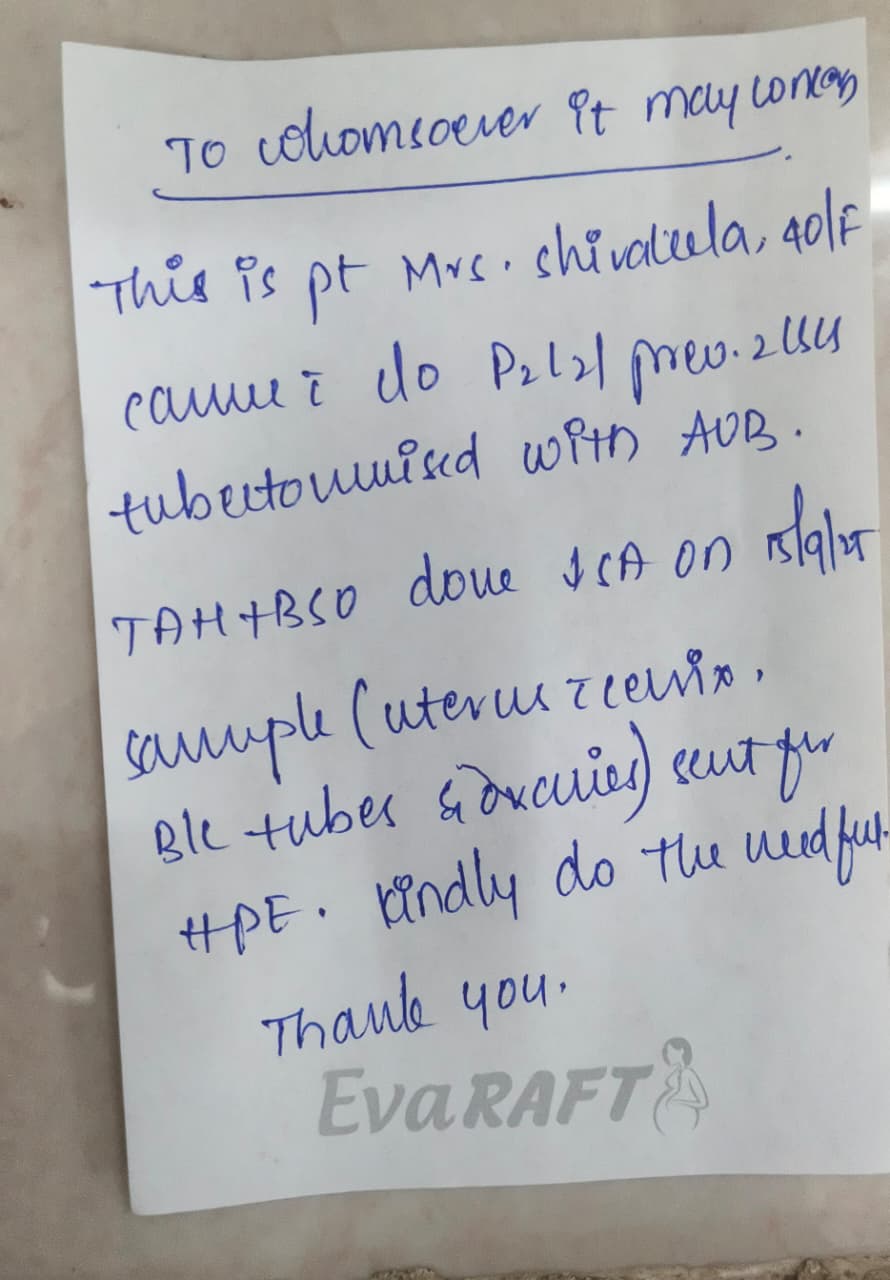 To whomsoever it may concern
This is pt Mrs. shivaleela, 40/F
came c̄ do P2L2 | prev. 2 LSCS
tubectomised with AUB.
TAH+BSO done ↓ SA on 15/9/25
sample (uterus c̄ cervix,
B/L tubes & ovaries) sent for
HPE. Kindly do the needful.
Thank you.
EvaRAFT